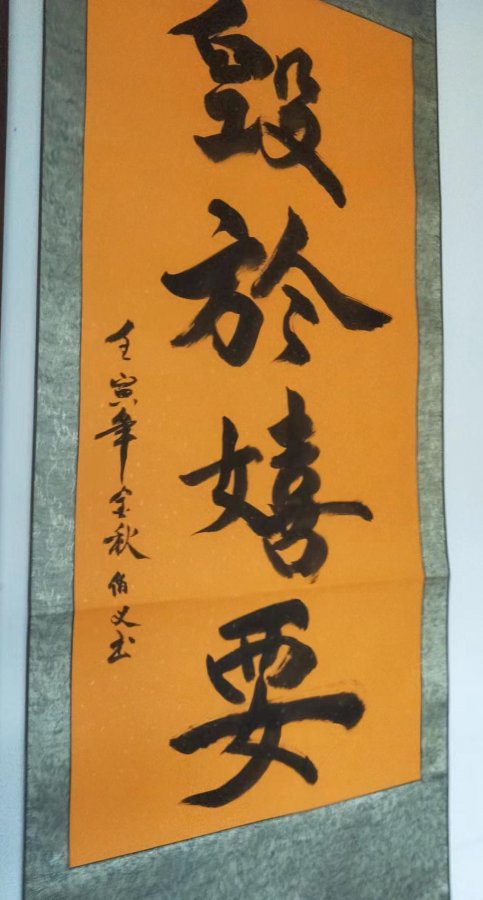 毁於嬉要
壬寅年金秋伯义书